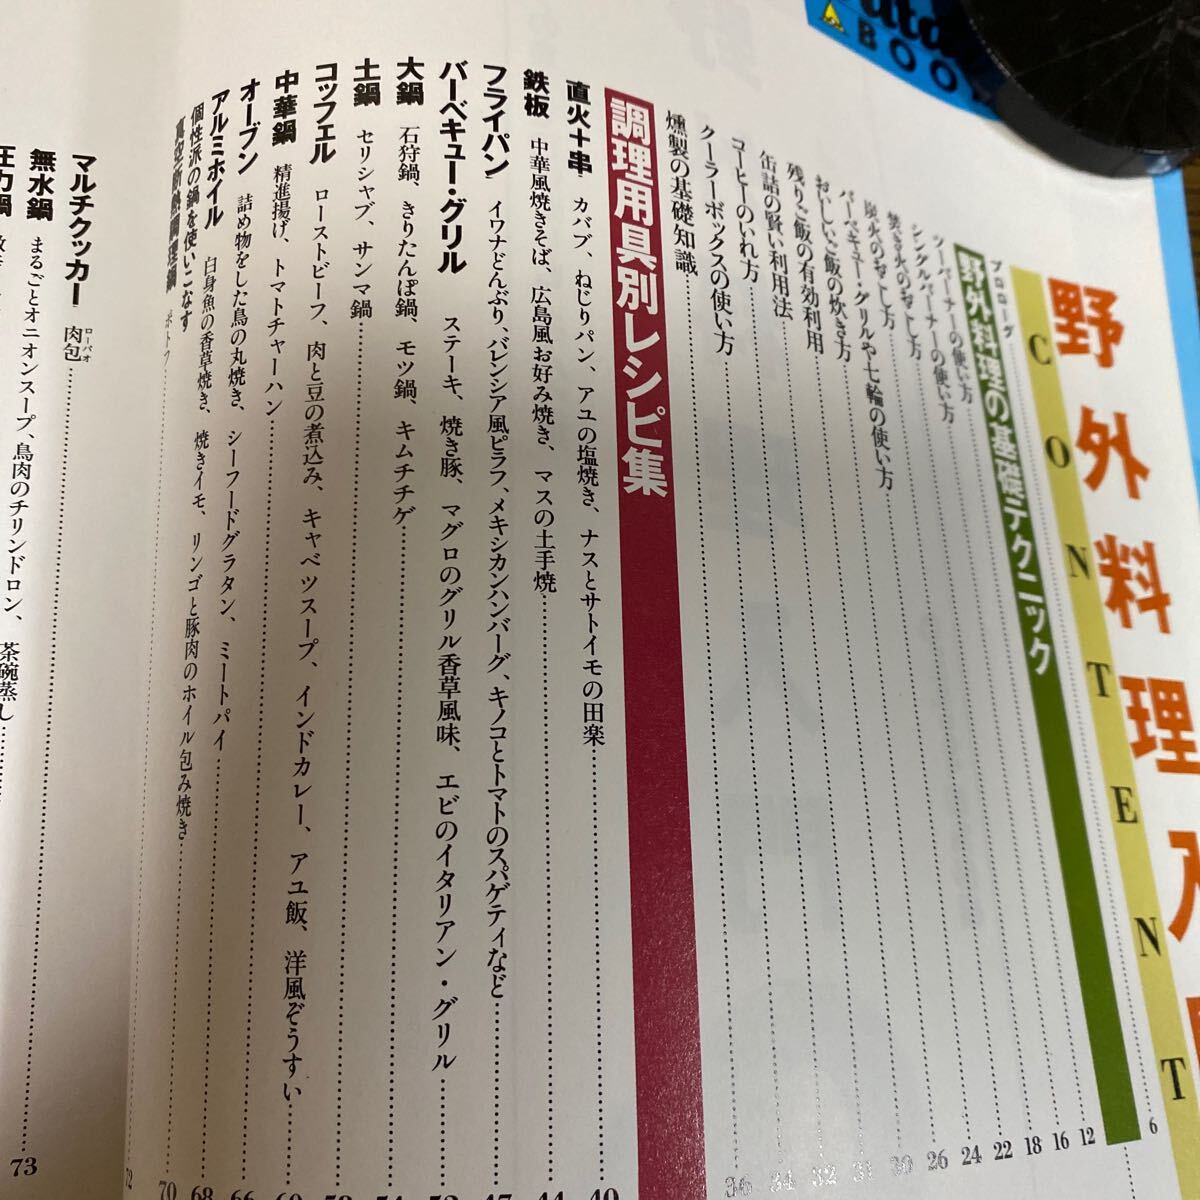 野外料理入
CONTENT
プロローグ
野外料理の基礎テクニック
ツーバーナーの使い方
シングルバーナーの使い方
焚き火のおこし方
炭火のおこし方
バーベキュー・グリルや七輪の使い方
おいしいご飯の炊き方
残りご飯の有効利用
缶詰の賢い利用法
コーヒーのいれ方
クーラーボックスの使い方
燻製の基礎知識
6
12
16
18
22
24
26
30
31
32
34
36
調理用具別レシピ集
直火+串 カバブ、ねじりパン、アユの塩焼き、ナスとサトイモの田楽 40
鉄板 中華風焼きそば、広島風お好み焼き、マスの土手焼 44
フライパン イワナどんぶり、バレンシア風ピラフ、メキシカンハンバーグ、キノコとトマトのスパゲティなど 47
バーベキュー・グリル ステーキ、焼き豚、マグロのグリル香草風味、エビのイタリアン・グリル 52
大鍋 石狩鍋、きりたんぽ鍋、モツ鍋、キムチチゲ 54
土鍋 セリシャブ、サンマ鍋
コッフェル ローストビーフ、肉と豆の煮込み、キャベツスープ、インドカレー、アユ飯、洋風ぞうすい
中華鍋 精進揚げ、トマトチャーハン
オーブン 詰め物をした鳥の丸焼き、シーフードグラタン、ミートパイ 66
アルミホイル 白身魚の香草焼き、焼きイモ、リンゴと豚肉のホイル包み焼き 68
個性派の鍋を使いこなす 70
真空断熱調理鍋 ポトフ 72
マルチクッカー 肉包 ローパオ
無水鍋 まるごとオニオンスープ、鳥肉のチリンドロン、茶碗蒸し 73
圧力鍋
BOO